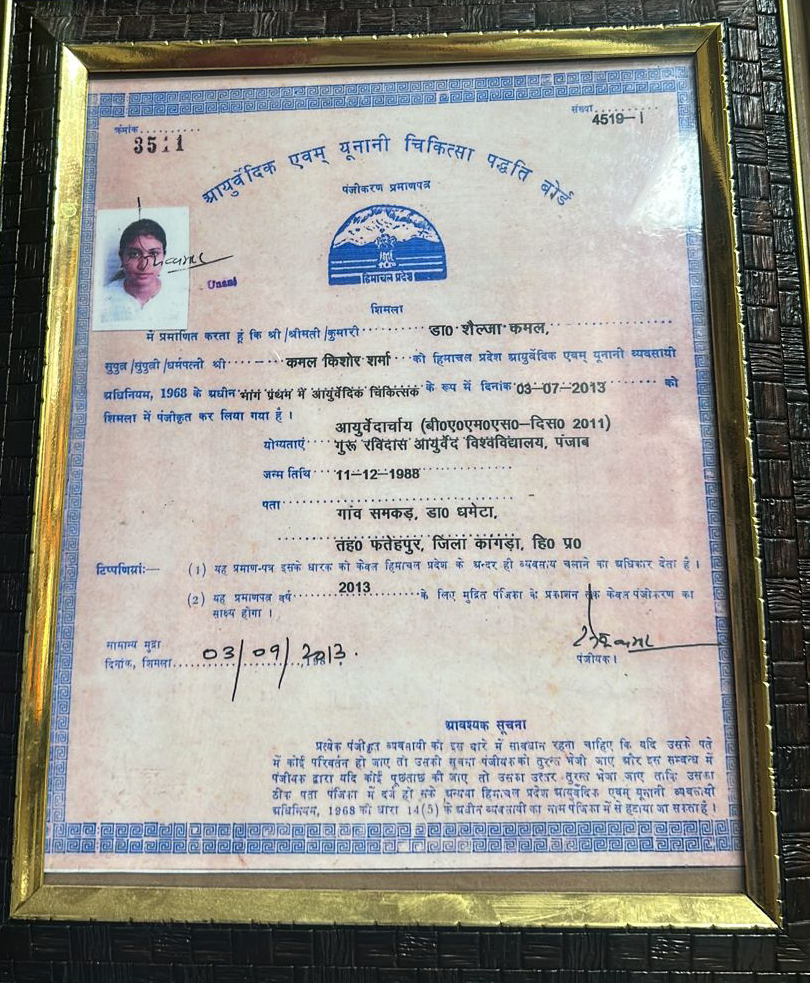 क्रमांक..........
3511
संख्या............
4519-I
आयुर्वेदिक एवम् यूनानी चिकित्सा पद्धति बोर्ड
पंजीकरण प्रमाणपत्र
हिमाचल प्रदेश
शिमला
मैं प्रमाणित करता हूं कि श्री/श्रीमती/कुमारी डा0 शैल्जा कमल,
सुपुत्र/सुपुत्री/धर्मपत्नी श्री कमल किशोर शर्मा को हिमाचल प्रदेश आयुर्वेदिक एवम् यूनानी व्यवसायी
अधिनियम, 1968 के अधीन भाग प्रथम में आयुर्वेदिक चिकित्सक के रूप में दिनांक 03-07-2013 को
शिमला में पंजीकृत कर लिया गया है।
आयुर्वेदार्चाय (बी0ए0एम0एस0-दिस0 2011)
योग्यताएं गुरू रविदास आयुर्वेद विश्वविद्यालय, पंजाब
जन्म तिथि 11-12-1988
पता
गांव समकड़, डा0 धमेटा,
तह0 फतेहपुर, जिला कांगड़ा, हि0 प्र0
टिप्पणियां:— (1) यह प्रमाण-पत्र इसके धारक को केवल हिमाचल प्रदेश के अन्दर ही व्यवसाय चलाने का अधिकार देता है।
(2) यह प्रमाणपत्र वर्ष 2013 के लिए मुद्रित पंजिका के प्रकाशन तक केवल पंजीकरण का
साक्ष्य होगा।
सामान्य मुद्रा
दिनांक, शिमला 03/09/2013.
पंजीयक।
आवश्यक सूचना
प्रत्येक पंजीकृत व्यवसायी को इस बारे में सावधान रहना चाहिए कि यदि उसके पते
में कोई परिवर्तन हो जाए तो उसकी सूचना पंजीयक को तुरन्त भेजी जाए और इस सम्बन्ध में
पंजीयक द्वारा यदि कोई पूछताछ की जाए तो उसका उत्तर तुरन्त भेजा जाए ताकि उसका
ठीक पता पंजिका में दर्ज हो सके अन्यथा हिमाचल प्रदेश आयुर्वेदिक एवम् यूनानी व्यवसायी
अधिनियम, 1968 की धारा 14(5) के अधीन व्यवसायी का नाम पंजिका में से हटाया जा सकता है।